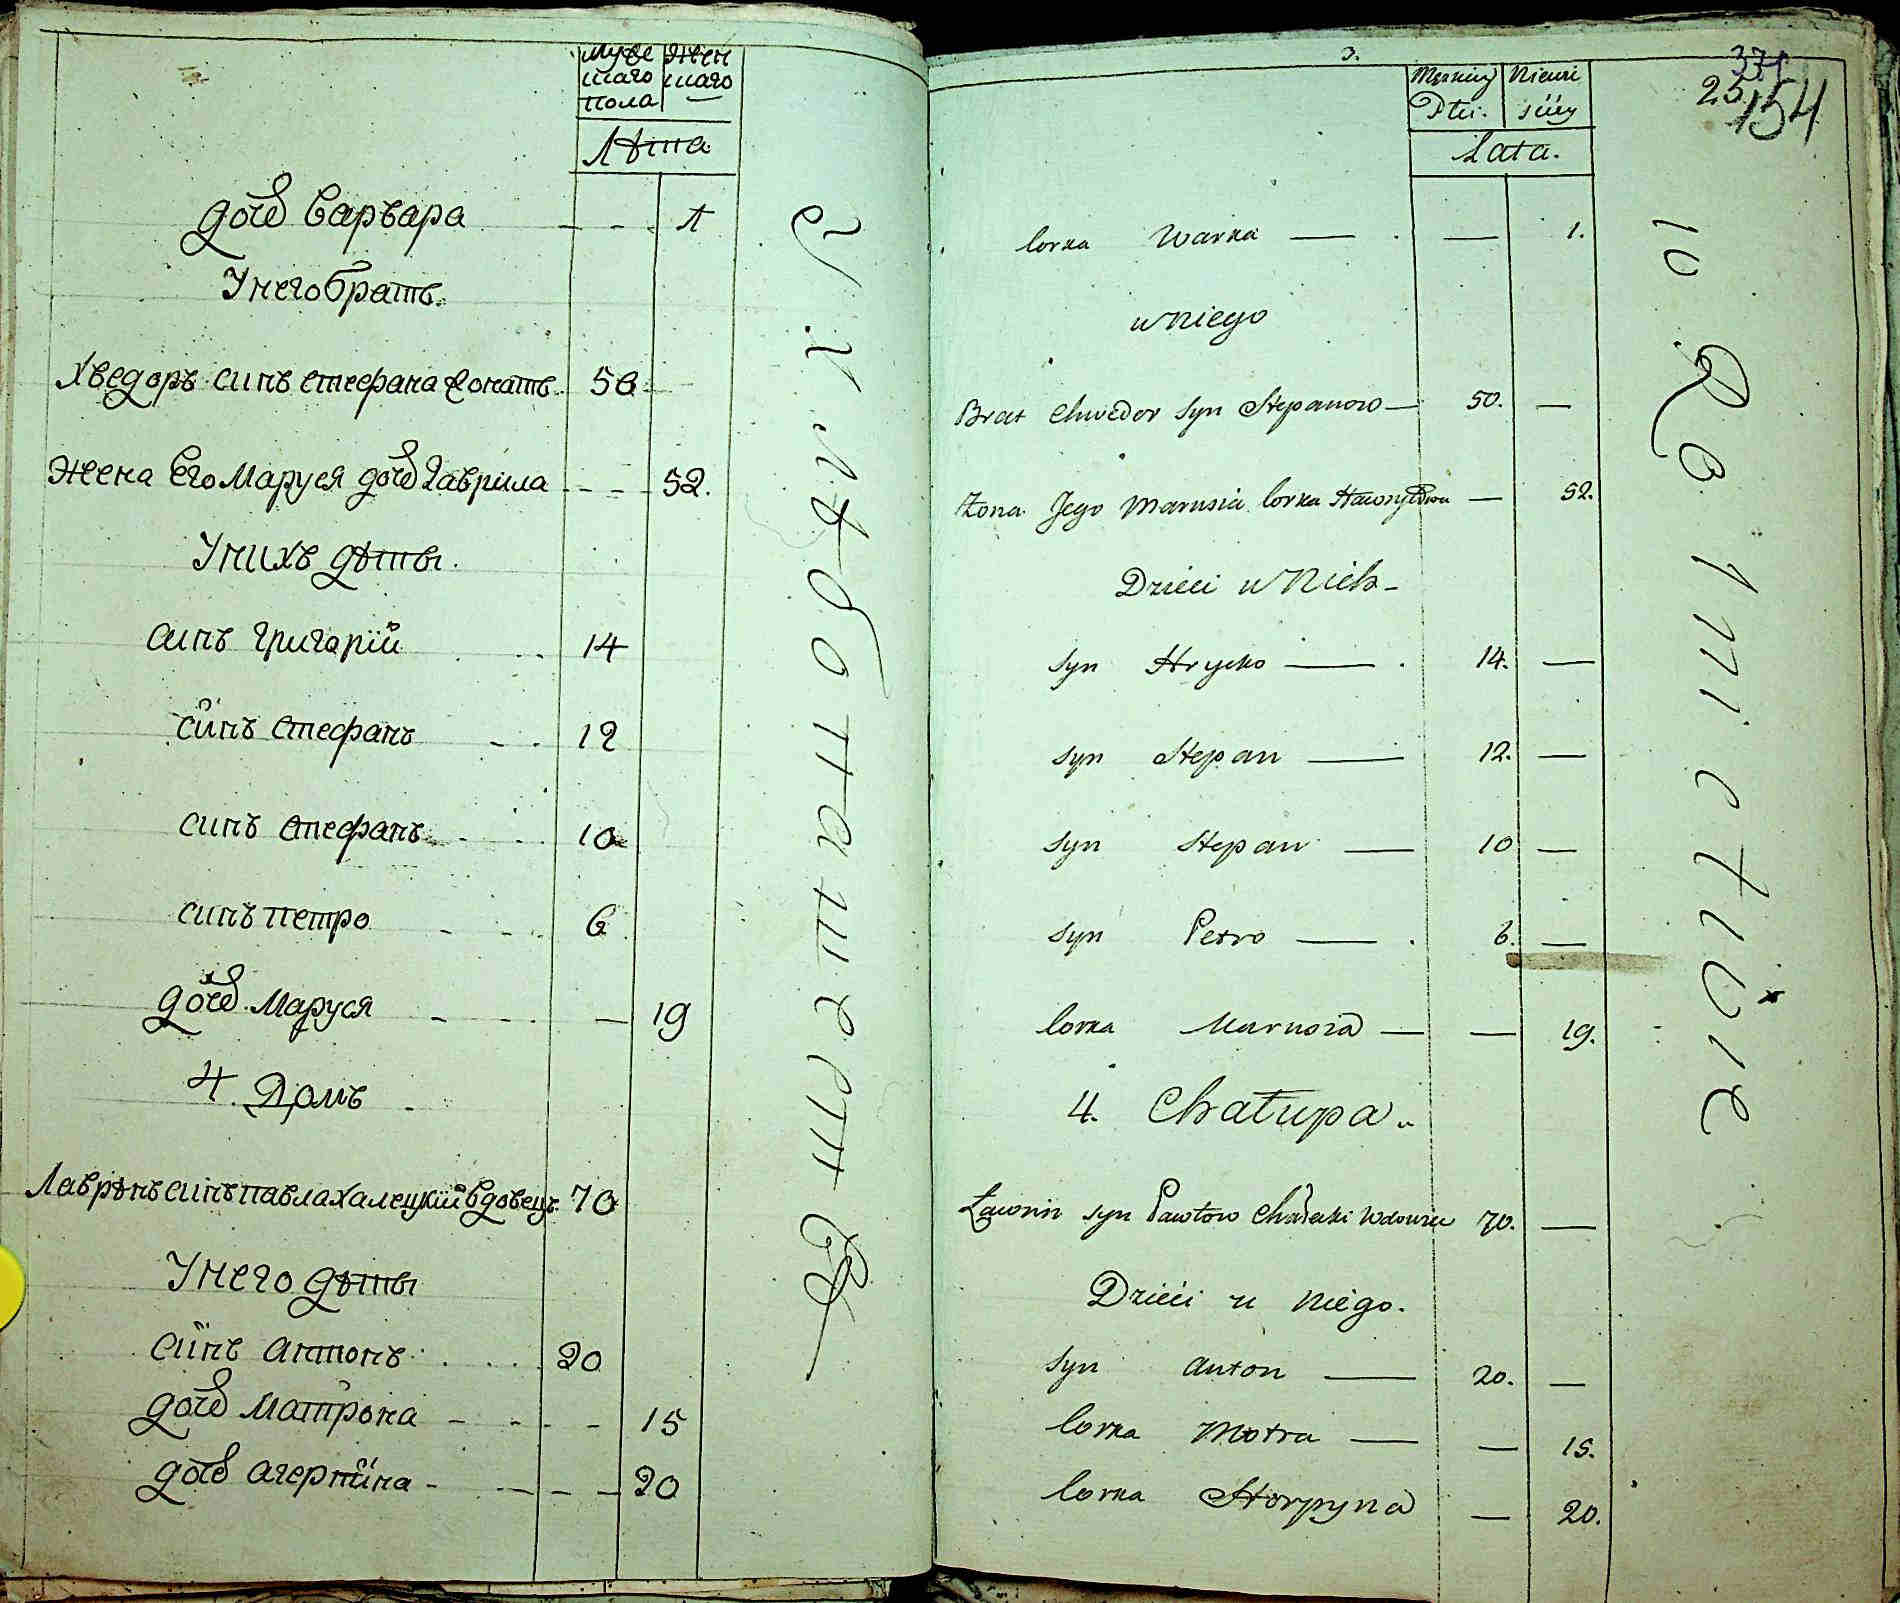 Муже Жен
скаго скаго
пола
Лѣта
дочь Варвара - - - 1
У него братъ.
Хведоръ синъ Стефана 50
Жена Его Маруся дочь Гаврила - - - 52.
У нихъ дѣты.
синъ Григорїй 14
синъ Стефанъ 12
синъ Стефанъ 10
синъ Петро 6
дочь Маруся - - - 19
4. Домъ
Лаврѣнъ синъ Павла Халецкїй вдовецъ 70
У него дѣты
синъ Антонъ 20
дочь Матрона - - - 15
дочь Агерпина - - - 20
3.
371
25
154
Męskiey Niewi
Płci. sciey
Lata.
Corka Warka — — 1.
u Niego
Brat Chwedor Syn Stepanow — 50. —
Żona Jego Marusia Corka — 52.
Dzieci u Nich -
Syn Hrycko — 14. —
Syn Stepan — 12. —
Syn Stepan — 10 —
Syn Petro — 6. —
Corka Marusia — — 19.
4. Chałupa.
Ławrin Syn Pawłow Chalecki Wdowiec 70. —
Dzieci u Niego.
Syn Anton — 20. —
Corka Motra — — 15.
Corka Horpyna — 20.